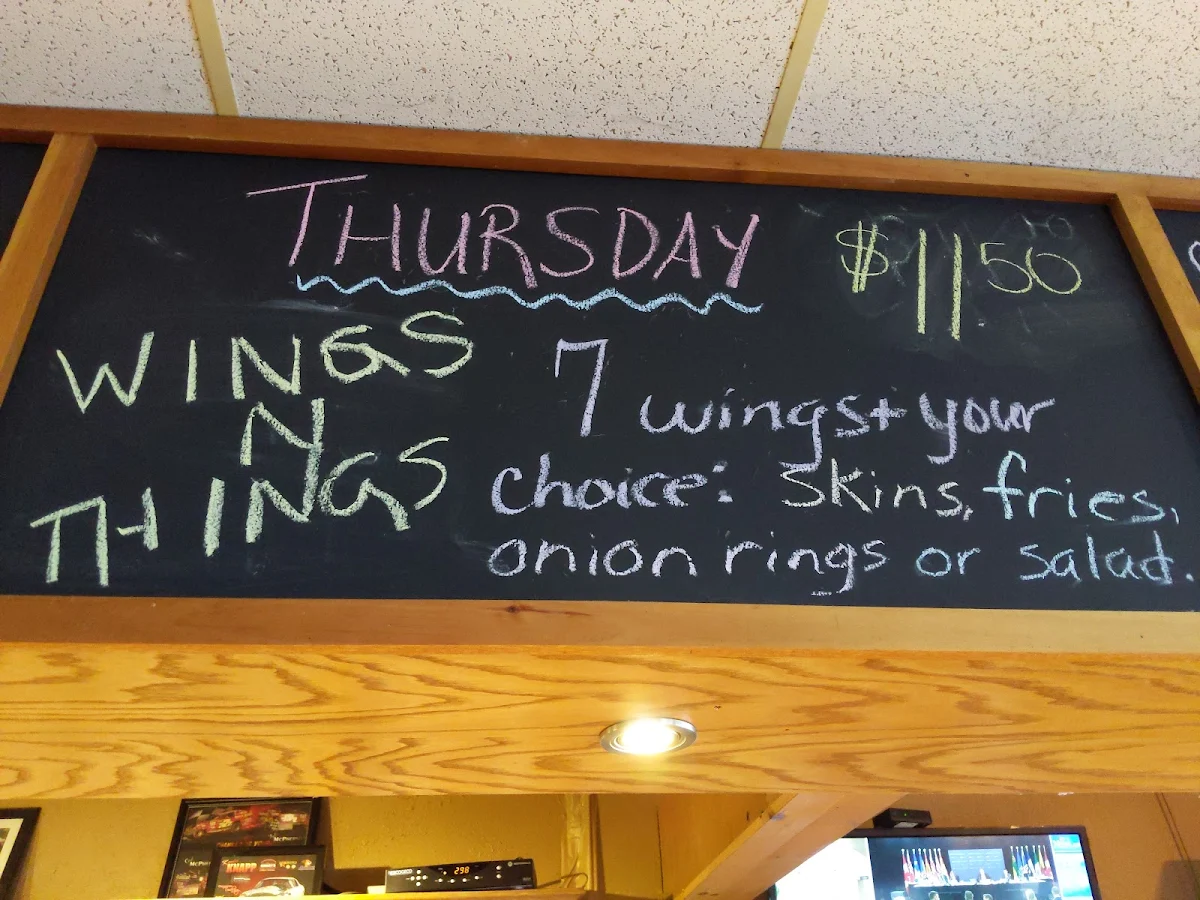 THURSDAY
$11 50
WINGS
N
THINGS
7 wings + your
choice: skins, fries,
onion rings or salad.
KNAPP
298